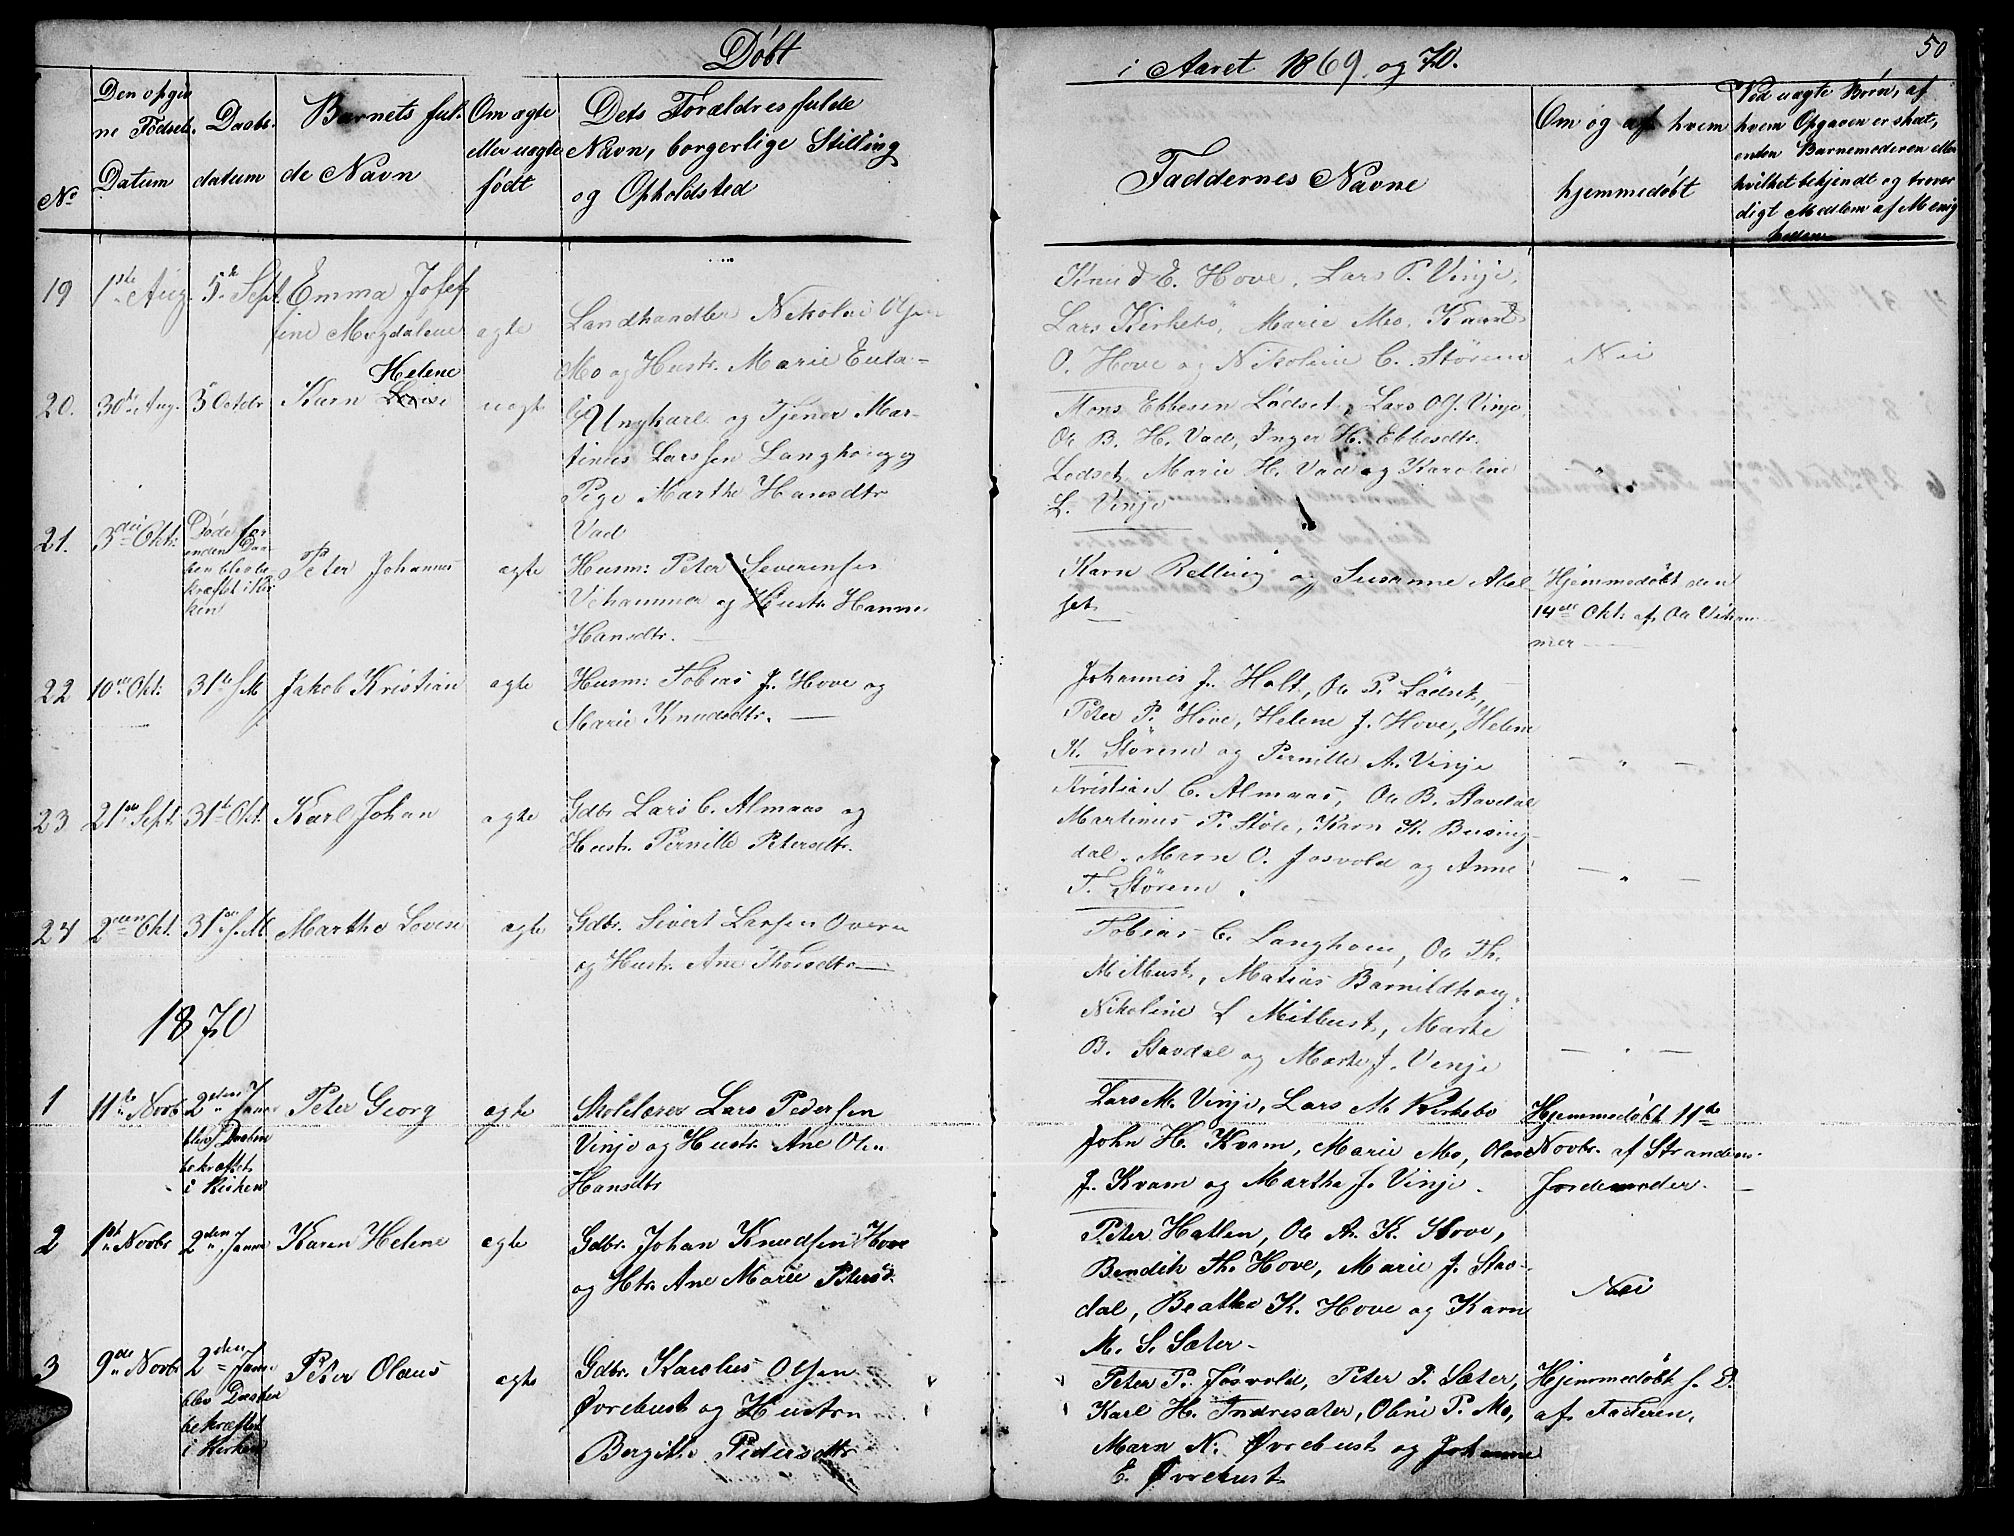 Døbt
i Aaret 1869 og 70.
50
No
Den opgiv
ne Fødsels
Datum
Daabs-
datum
Barnets ful-
de Navn
Om ægte
eller uægte
født
Dets Forældres fulde
Navn, borgerlige Stilling
og Opholdsted
Faddernes Navne
Om og af hvem
hjemmedøbt
Ved uægte Børn, af
hvem Opgaven er skeet,
enden Barnemoderen eller
hvilket bekjendt og trover
digt Medlem af Menig
heden
19
1ste Aug.
5te Sept.
Emma Josef
fine Magdalene
ægte
Landhandler Nikolai Olsen
Mo og Hustr. Marie Eula-
lie
Knud E. Hove, Lars P. Vinje,
Lars Kirkebø, Marie Mo, Knud
O. Hove og Nikoline C. Störem
Nei
20.
30te Aug.
3 Octobr
Karn Helene
uægte
Ungkarl og Tjener Mar-
tinus Larssen Langhoug og
Pige Marthe Hansdtr
Vad
Mons Ebbesen Lødset, Lars Ols. Vinje
Ole B. H. Vad, Inger H. Ebbesdtr.
Lødset, Marie H. Vad og Karoline
L. Vinje
"
21.
3die Okt.
Døde for
enden Daa
ben blev be
kræftet i Kir
ken
Peter Johannes
ægte
Husm: Peter Severinsen
Vihammer og Hustr. Hanne
Hansdtr.
Karn Relling og Susanne Aal
set
Hjemmedøbt den
14de Okt. af Ole Viham
mer
22
10de Okt.
31te s. M
Jakob Kristian
ægte
Husm: Tobias J. Hove og
Marie Knudsdtr.
Johannes J. Holt, Ole P. Lødset,
Peter P. Hove, Helene J. Hove, Helene
K. Störem og Pernille A. Vinje
"
23
21de Sept
31te Okt.
Karl Johan
ægte
Gdbr. Lars C. Almaas og
Hustr. Pernille Petersdtr.
Kristian C. Almaas, Ole B. Stavdal
Martinus P. Støle, Karn K. Busing-
dal, Marn O. Josvold og Anne
T. Störem.
"
24
2den Okt.
31te s. M.
Marthe Lovise
ægte
Gdbr. Sivert Larsen Overn
og Hustr. Ane Thorsdtr
Tobias C. Langhoug, Ole Th.
Mitbust, Matias Barnildhoug,
Nikoline L Mitbust, Marte
B. Stavdal og Marte J. Vinje
"
1870
1
11te Novb
2den Janr
blev Daaben
bekræftet
i Kirken
Peter Georg
ægte
Skolelærer Lars Pedersen
Vinje og Hustr. Ane Oline
Hansdtr
Lars M. Vinje, Lars M Kirkebø
John H. Kvam, Marie Mo, Olave
J. Kvam og Marthe J. Vinje.
Hjemmedøbt 11te
Novbr. af Strandens
Jordemoder.
2
1ste Novbr
2den Janr
Karen Helene
ægte
Gdbr. Johan Knudsen Hove
og Htr. Ane Marie Petersd.
Peter Hatlen, Ole A. K. Hove,
Bendik Th. Hove, Marie J. Stav-
dal, Beathe K. Hove og Karn
M. S. Sæter.
Nei
3
9de Novbr
2den Janr
blev Daaben
bekræftet
i Kirken
Peter Olaus
ægte
Gdbr. Karolus Olsen
Øvrebust og Hustru
Bergithe Pedersdtr.
Peter P. Josvold, Peter P. Sæter,
Karl H. Indresæter, Oline P. Mo,
Marn N. Øvrebust og Johanne
E. Øvrebust
Hjemmedøbt s. D.
af Faderen.